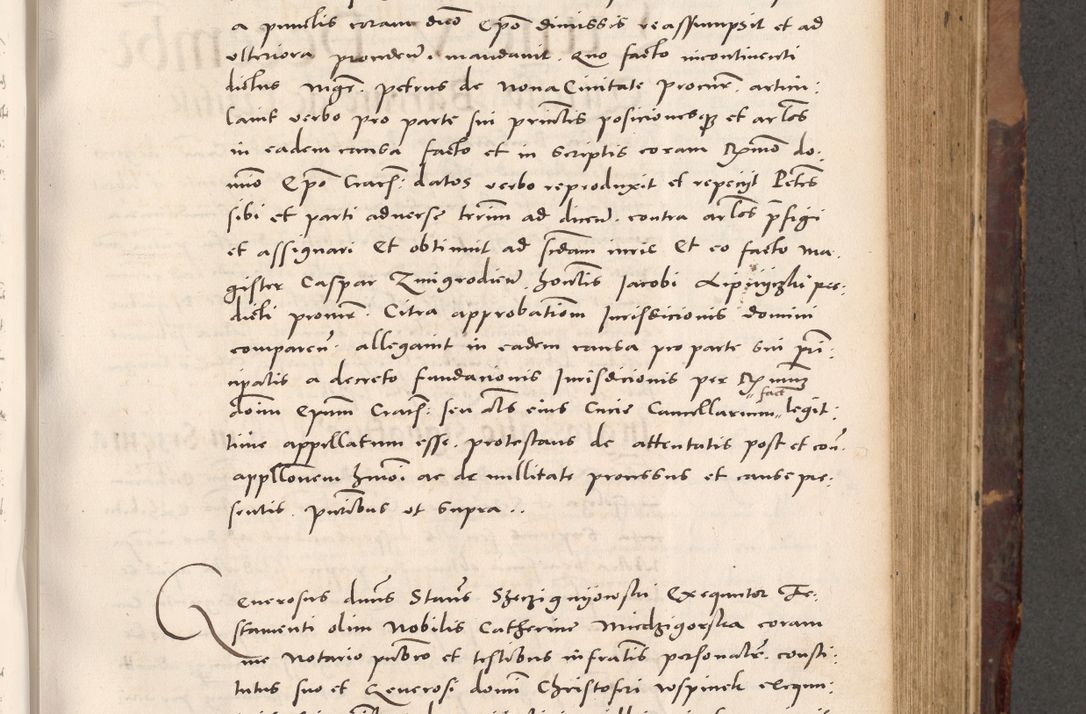 a punctis coram dicto Epo dimissis reassumpsit et ad
ulteriora procedere mandavit. Quo facto incontinenti
dictus Mgr. petrus de nova Civitate procurr. articu:
lavit verbo pro parte sui princtis posiciones et arlos
in eadem causa facto et in scriptis coram Rxmo do:
mino Epo Crars: datos verbo reproduxit et repeciyt Petrs
sibi et parti adverse trrim ad dicend. contra arlos pfigi
et assignari Et obtinuit ad sedam iuris Et eo facto ma:
gister Caspar Zmigrodien. honestis Jacobi Lipnyczki per:
dicti procurr. Citra approbationem Jurisdicionis domini
comparen. allegavit in eadem causa pro parte sui pri:
cipalis a decreto fundacionis Jurisdicionis per Rxmum
fact
doim Epum Crars: seu als eius Curie Cancellarium legit:
time appellatum esse. protestans de attentatis post et con.
appllonem hmoi ac de nullitate processus et cause pre:
sentis. pntibus ut supra..
Generosus dnus Staus Szcrzignyiowski Exequutor Te:
stamenti olim Nobilis Catherine Miedzigorska coram
me Notario publco et testibus infratis personalr. consti:
tutus suo et Generosi domi Christoferi rospinek exequu: